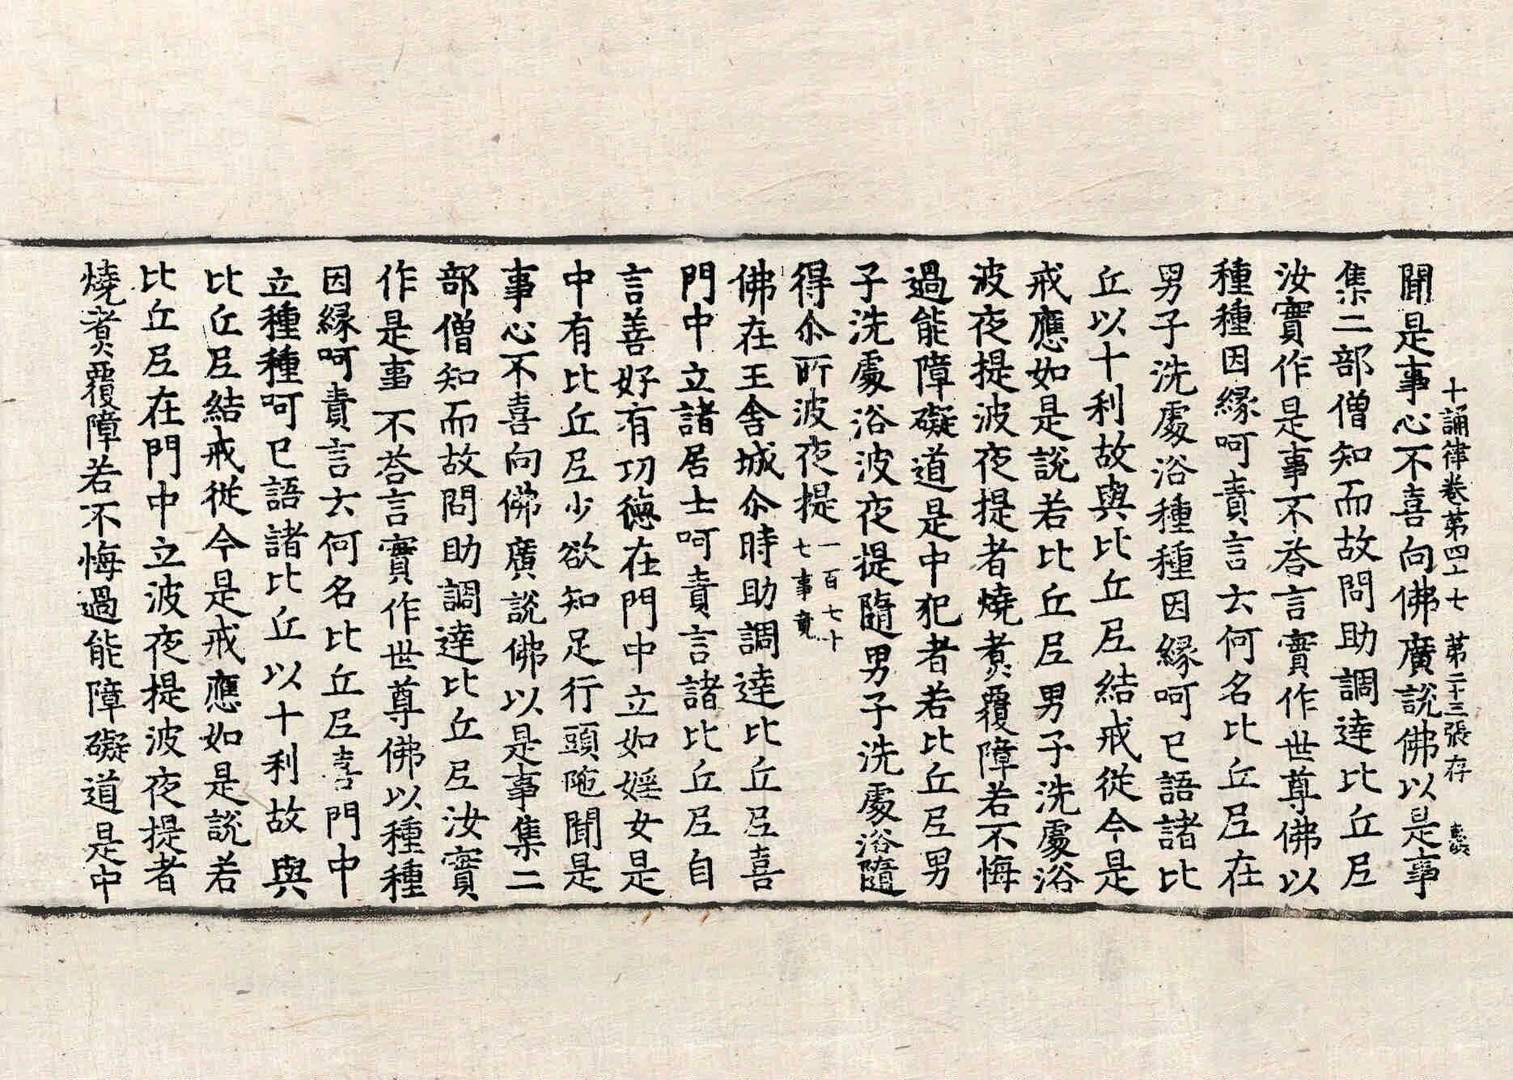 十誦律卷第四十七 第二十三張 存
聞是事心不喜向佛廣説佛以是事
集二部僧知而故問助調達比丘尼
汝實作是事不荅言實作世尊佛以
種種因縁呵責言云何名比丘尼在
男子洗處浴種種因縁呵已語諸比
丘以十利故與比丘尼結戒從今是
戒應如是説若比丘尼男子洗處浴
波夜提波夜提者燒煑覆障若不悔
過能障礙道是中犯者若比丘尼男
子洗處浴波夜提隨男子洗處浴隨
得尒所波夜提一百七十七事竟
佛在王舍城尒時助調達比丘尼喜
門中立諸居士呵責言諸比丘尼自
言善好有功德在門中立如婬女是
中有比丘尼少欲知足行頭陁聞是
事心不喜向佛廣説佛以是事集二
部僧知而故問助調達比丘尼汝實
作是事不荅言實作世尊佛以種種
因縁呵責言云何名比丘尼喜門中
立種種呵已語諸比丘以十利故與
比丘尼結戒從今是戒應如是説若
比丘尼在門中立波夜提波夜提者
燒煑覆障若不悔過能障礙道是中